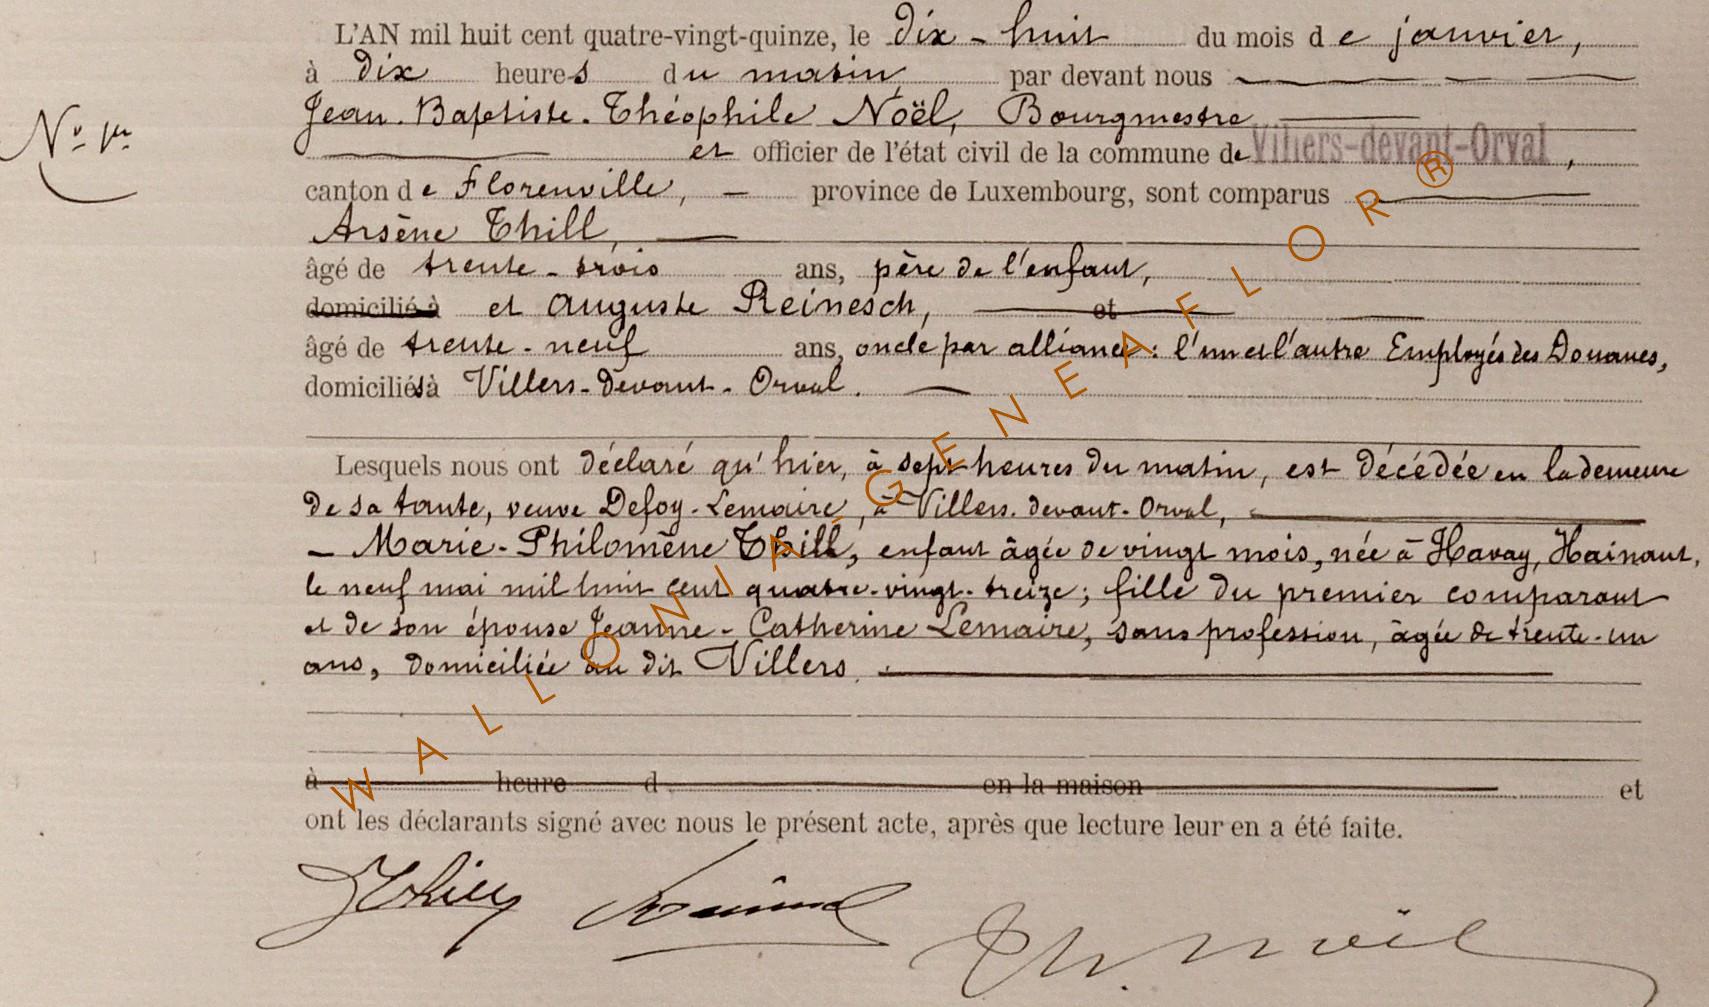 L'AN mil huit cent quatre-vingt-quinze, le dix-huit du mois de janvier,
à dix heures du matin, par devant nous
Jean-Baptiste-Théophile Noël, Bourgmestre
N° 1er
et officier de l'état civil de la commune de Villers-devant-Orval,
canton de Florenville, — province de Luxembourg, sont comparus
Arsène Thill, —
âgé de trente-trois ans, père de l'enfant,
domicilié à et Auguste Reinesch, — et —
âgé de trente-neuf ans, oncle par alliance: l'un et l'autre Employés des Douanes,
domiciliés à Villers-devant-Orval. —
Lesquels nous ont déclaré qu'hier, à sept heures du matin, est décédée en la demeure
de sa tante, veuve Defoy-Lemaire, à Villers-devant-Orval, —
— Marie-Philomène Thill, enfant âgée de vingt mois, née à Havay, Hainaut,
le neuf mai mil huit cent quatre-vingt-treize; fille du premier comparant
et de son épouse Jeanne-Catherine Lemaire, sans profession, âgée de trente-un
ans, domiciliée au dit Villers. —
à heure d en la maison et
ont les déclarants signé avec nous le présent acte, après que lecture leur en a été faite.
Thill Th. Noël
WALLONIA-GENEAFLOR®